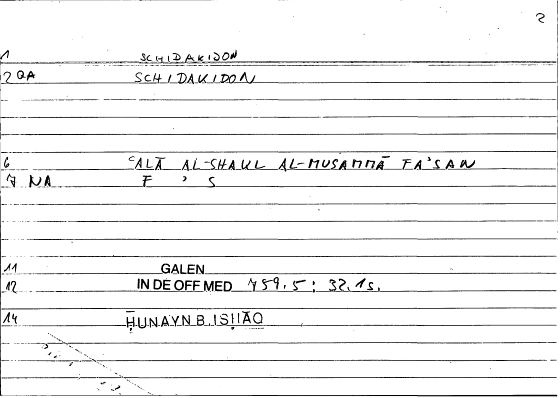 2
1 SCHIDAKIDON
2 QA SCHIDAKIDON
6 ʿALĀ AL-SHAKL AL-MUSAMMĀ FAʾSAN
7 NA F ʾ S
11 GALEN
12 IN DE OFF MED 789.5; 32.1s.
14 ḤUNAYN B. ISḤĀQ